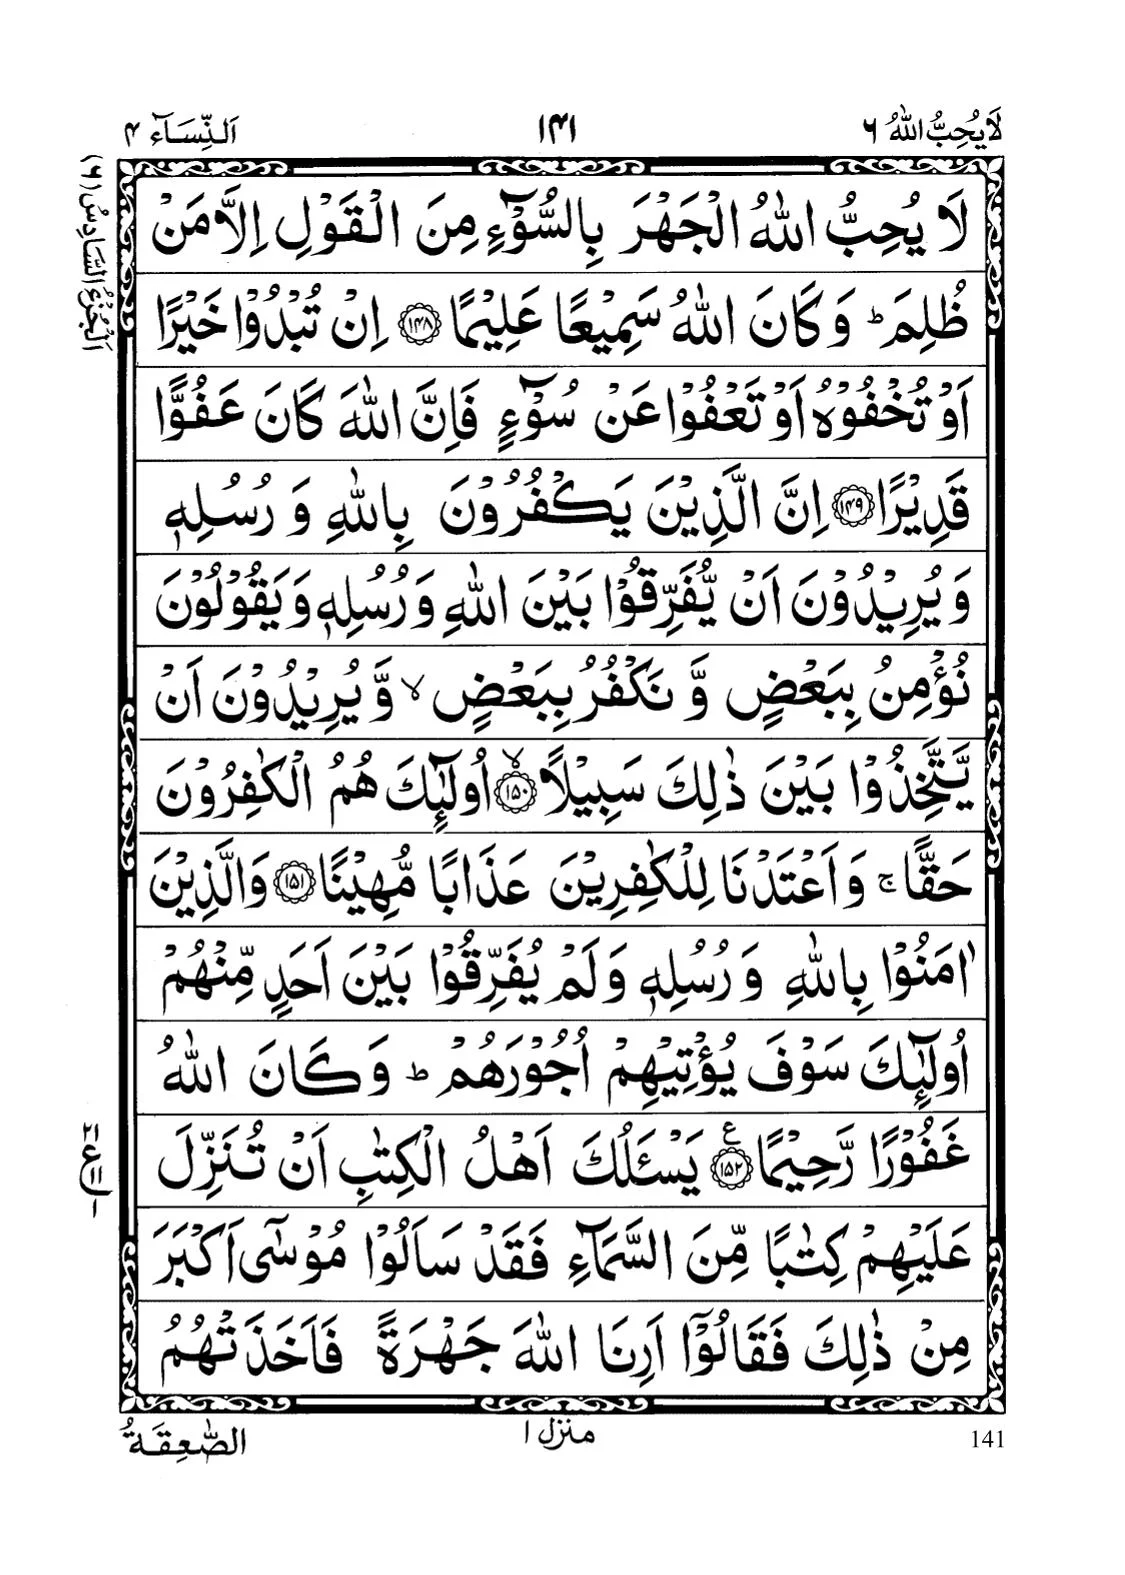 لَا يُحِبُّ اللّٰهُ ٦
١٤١
اَلنِّسَآء ٤
اَلْجُزْءُ السَّادِسُ (٦)
لَا يُحِبُّ اللّٰهُ الْجَهْرَ بِالسُّوْٓءِ مِنَ الْقَوْلِ اِلَّا مَنْ
ظُلِمَ ؕ وَ كَانَ اللّٰهُ سَمِيْعًا عَلِيْمًا ١٤٨ اِنْ تُبْدُوْا خَيْرًا
اَوْ تُخْفُوْهُ اَوْ تَعْفُوْا عَنْ سُوْٓءٍ فَاِنَّ اللّٰهَ كَانَ عَفُوًّا
قَدِيْرًا ١٤٩ اِنَّ الَّذِيْنَ يَكْفُرُوْنَ بِاللّٰهِ وَ رُسُلِهٖ
وَ يُرِيْدُوْنَ اَنْ يُّفَرِّقُوْا بَيْنَ اللّٰهِ وَ رُسُلِهٖ وَ يَقُوْلُوْنَ
نُؤْمِنُ بِبَعْضٍ وَّ نَكْفُرُ بِبَعْضٍ ۙ وَّ يُرِيْدُوْنَ اَنْ
يَّتَّخِذُوْا بَيْنَ ذٰلِكَ سَبِيْلًا ۙ ١٥٠ اُولٰٓئِكَ هُمُ الْكٰفِرُوْنَ
حَقًّا ۚ وَ اَعْتَدْنَا لِلْكٰفِرِيْنَ عَذَابًا مُّهِيْنًا ١٥١ وَ الَّذِيْنَ
اٰمَنُوْا بِاللّٰهِ وَ رُسُلِهٖ وَ لَمْ يُفَرِّقُوْا بَيْنَ اَحَدٍ مِّنْهُمْ
اُولٰٓئِكَ سَوْفَ يُؤْتِيْهِمْ اُجُوْرَهُمْ ؕ وَ كَانَ اللّٰهُ
غَفُوْرًا رَّحِيْمًا ١٥٢ ع يَسْـَٔلُكَ اَهْلُ الْكِتٰبِ اَنْ تُنَزِّلَ
عَلَيْهِمْ كِتٰبًا مِّنَ السَّمَآءِ فَقَدْ سَاَلُوْا مُوْسٰٓى اَكْبَرَ
مِنْ ذٰلِكَ فَقَالُوْٓا اَرِنَا اللّٰهَ جَهْرَةً فَاَخَذَتْهُمُ
٢١
ع
١١
١
141
منزل ١
الصّٰعِقَةُ